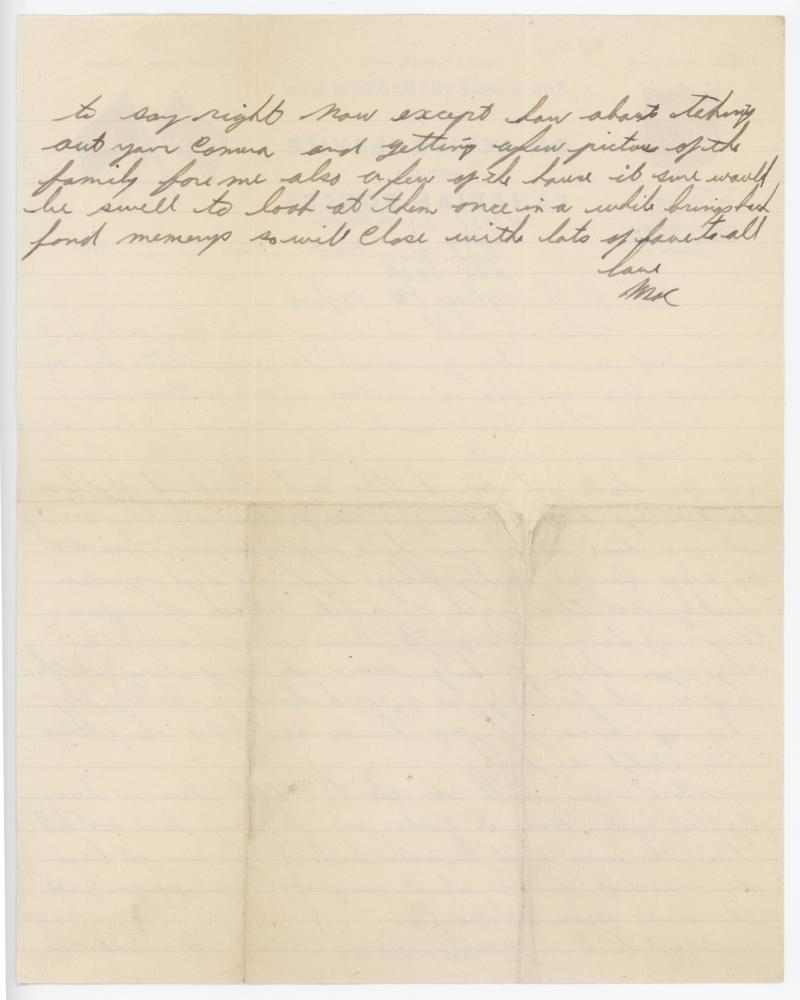 to say right now except how about taking
out your Camera and getting a few pictures of the
family fore me also a few of the house it sure would
be swell to look at them once in a while brings back
fond memerys so will Close with lots of love to all
love
Mac